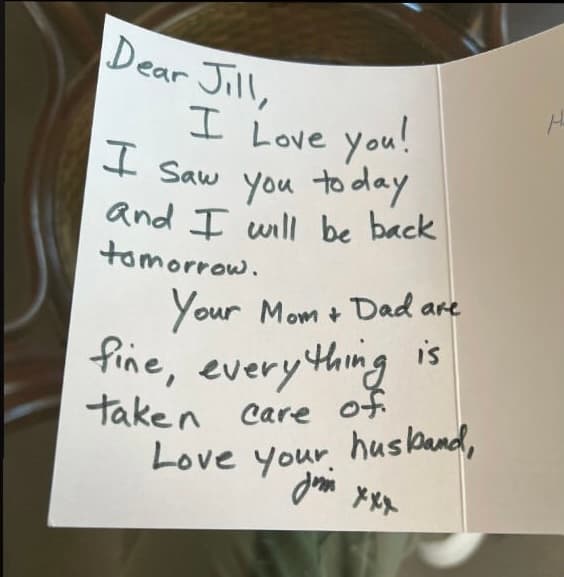 Dear Jill,
I Love you!
I Saw you today
and I will be back
tomorrow.
Your Mom + Dad are
fine, everything is
taken care of.
Love your husband,
Jim xxx